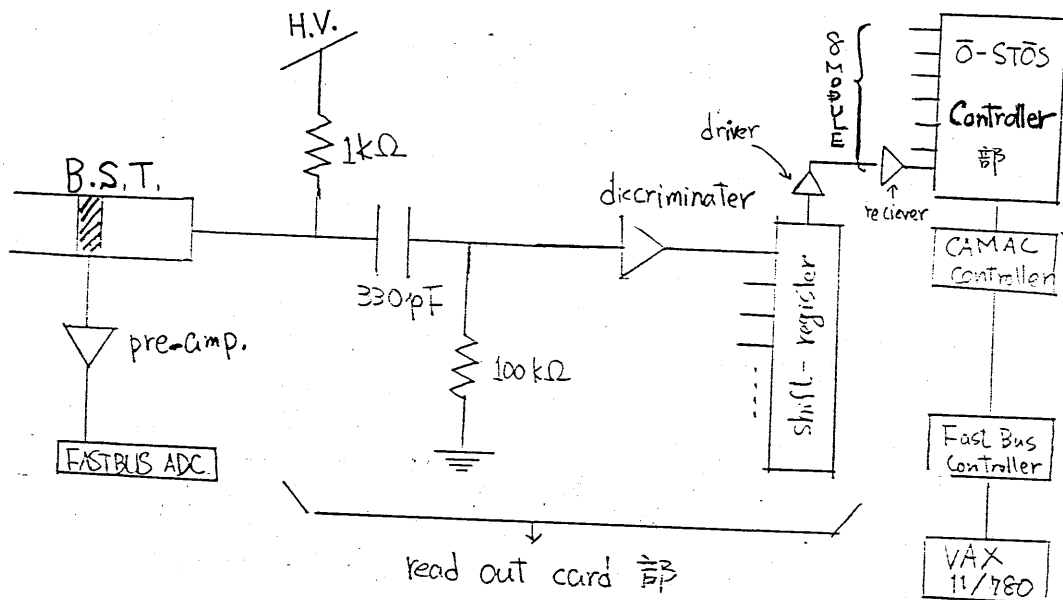 H.V.
1kΩ
B.S.T.
330pF
100kΩ
pre-amp.
FASTBUS ADC.
diccriminater
shift-register
driver
8 MODULE
reciever
Ō-STŌS
Controller
部
CAMAC
Controller
Fast Bus
Controller
VAX
11/780
read out card 部